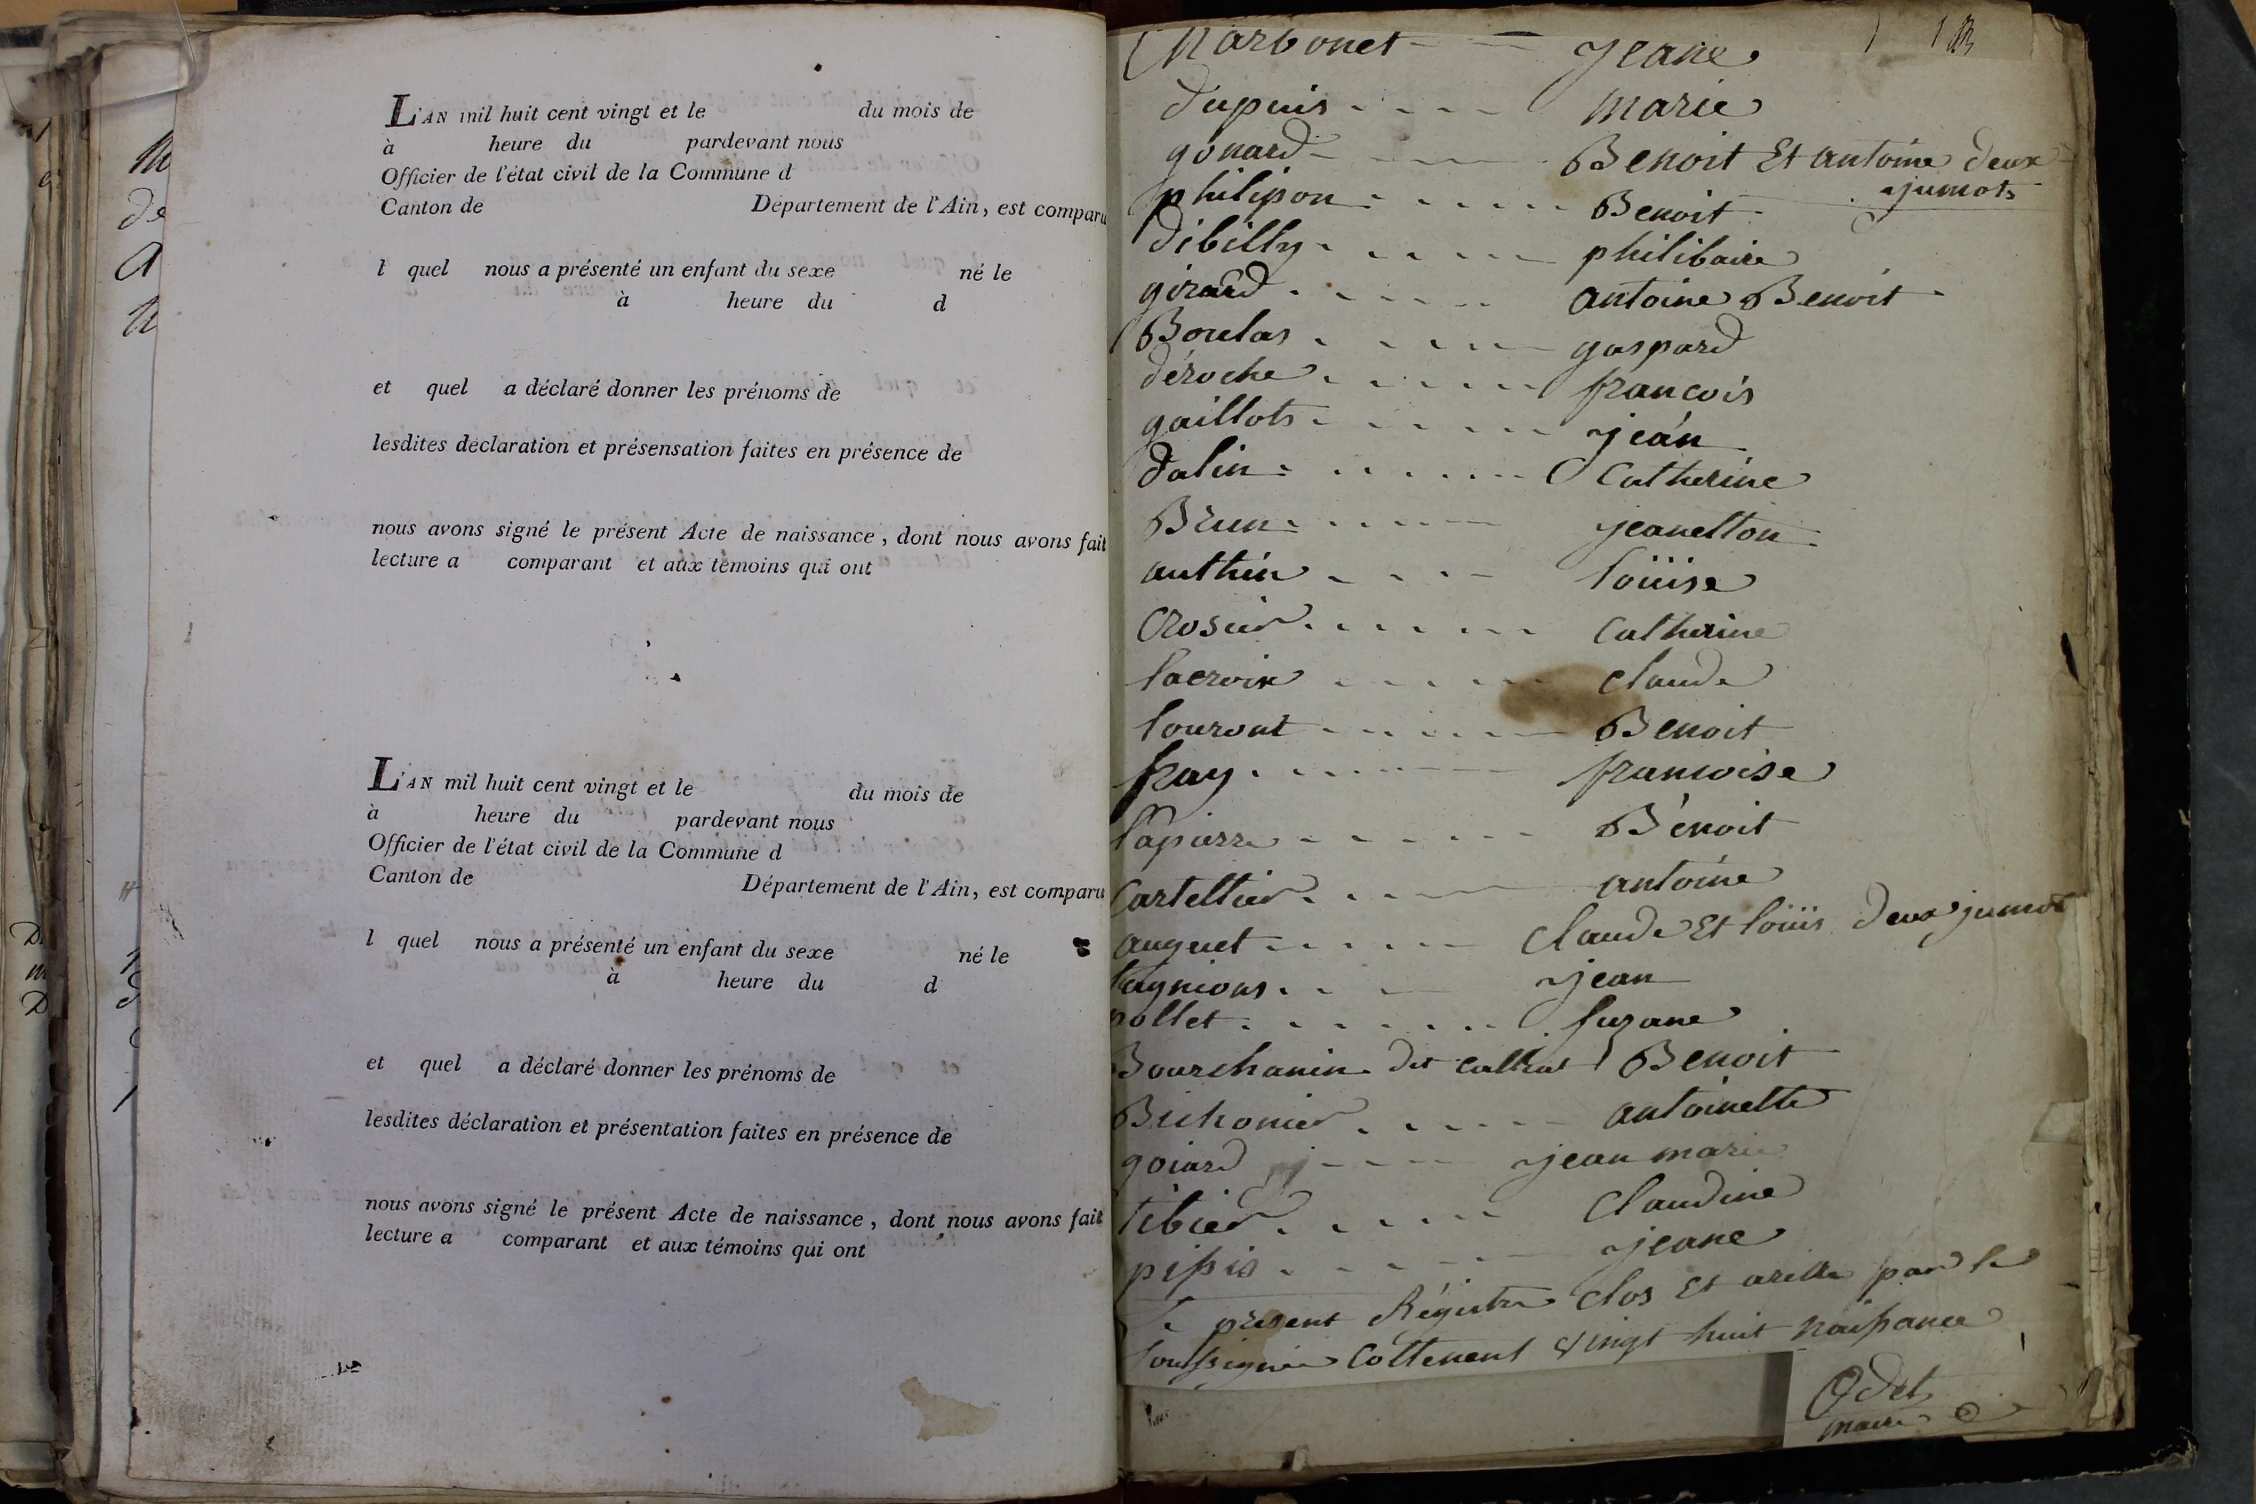 L'AN mil huit cent vingt et le du mois de
à heure du pardevant nous
Officier de l'état civil de la Commune d
Canton de Département de l'Ain, est comparu
l quel nous a présenté un enfant du sexe né le
à heure du d
et quel a déclaré donner les prénoms de
lesdites déclaration et présensation faites en présence de
nous avons signé le présent Acte de naissance, dont nous avons fait
lecture a comparant et aux témoins qui ont
L'AN mil huit cent vingt et le du mois de
à heure du pardevant nous
Officier de l'état civil de la Commune d
Canton de Département de l'Ain, est comparu
l quel nous a présenté un enfant du sexe né le
à heure du d
et quel a déclaré donner les prénoms de
lesdites déclaration et présentation faites en présence de
nous avons signé le présent Acte de naissance, dont nous avons fait
lecture a comparant et aux témoins qui ont
Charbonet jeane
dupuis marie
gonard Benoit Et antoine deux
jumots
philipon Benoit
dibilly philibaire
girard antoine Benoit
Boulas gaspard
déroche francois
gaillots jean
dalin Catherine
Brun jeanetton
authin loüise
Crosier Catherine
lacroix claude
louront Benoit
fray francoise
lapierre Bénoit
Carteltier antoine
auguet claude Et loüis deux jumot
jean
pollet suzane
Bourchanin dit Benoit
Bichonier antoinette
goiard jean marie
tibier claudine
pissis jeane
Le présent Régistre Clos Et arette par le
soussignée Cottenent vingt huit naissance
Odet
maire